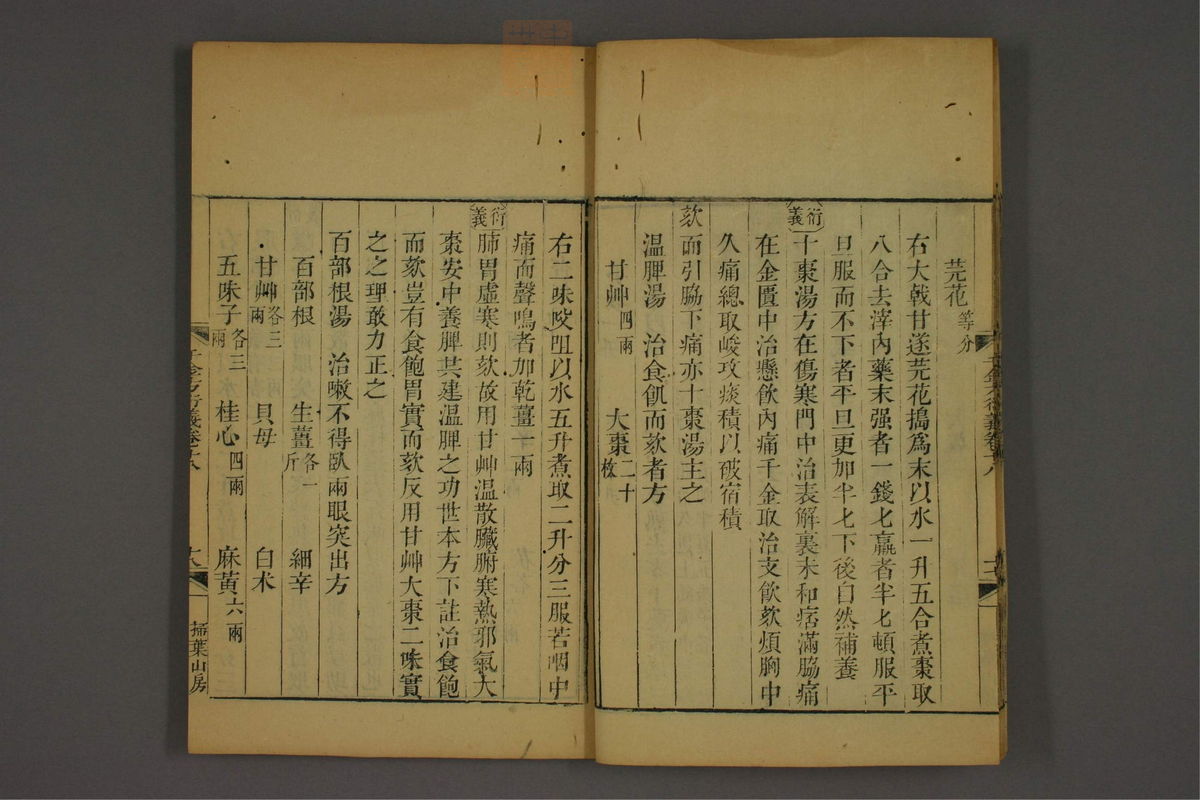 芫花等分
右大戟甘遂芫花搗爲末以水一升五合煮棗取
八合去滓內藥末强者一錢匕羸者半匕頓服平
旦服而不下者平旦更加半匕下後自然補養
衍義
十棗湯方在傷寒門中治表解裏未和痞滿脇痛
在金匱中治懸飮內痛千金取治支飮欬煩胸中
久痛總取峻攻痰積以破宿積
欬而引脇下痛亦十棗湯主之
温脾湯 治食飢而欬者方
甘艸四兩 大棗二十枚
右二味㕮咀以水五升煮取二升分三服若咽中
痛而聲鳴者加乾薑一兩
衍義
肺胃虛寒則欬故用甘艸温散臟腑寒熱邪氣大
棗安中養脾共建温脾之功世本方下註治食飽
而欬豈有食飽胃實而欬反用甘艸大棗二味實
之之理敢力正之
百部根湯 治嗽不得臥兩眼突出方
百部根 生薑各一斤 細辛
甘艸各三兩 貝母 白术
五味子各三兩 桂心四兩 麻黄六兩
千金方衍義卷十八
掃葉山房